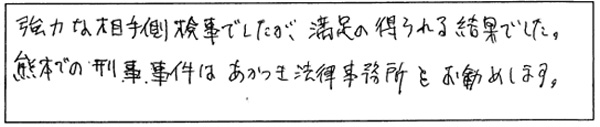 強力な相手側検事でしたが、満足の得られる結果でした。
熊本での刑事事件はあかつき法律事務所をお勧めします。